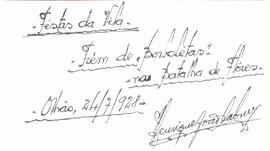 - Festas da Vila -
- Trém de "Borboletas" -
- na Batalha de Flores -
- Olhão, 24/7/928 -
Henrique